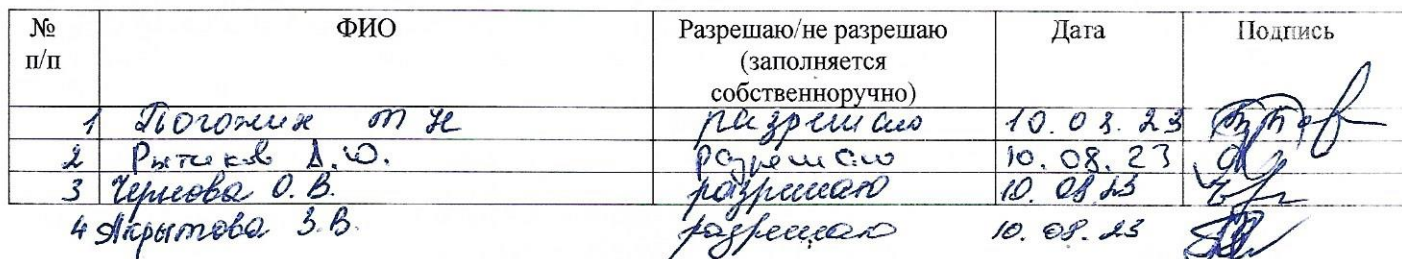 № п/п ФИО Разрешаю/не разрешаю (заполняется собственноручно) Дата Подпись
1 Погожих Т Н разрешаю 10.08.23
2 А.Ю. разрешаю 10.08.23
3 Чернова О.В. разрешаю 10.08.23
4 З.В. разрешаю 10.08.23